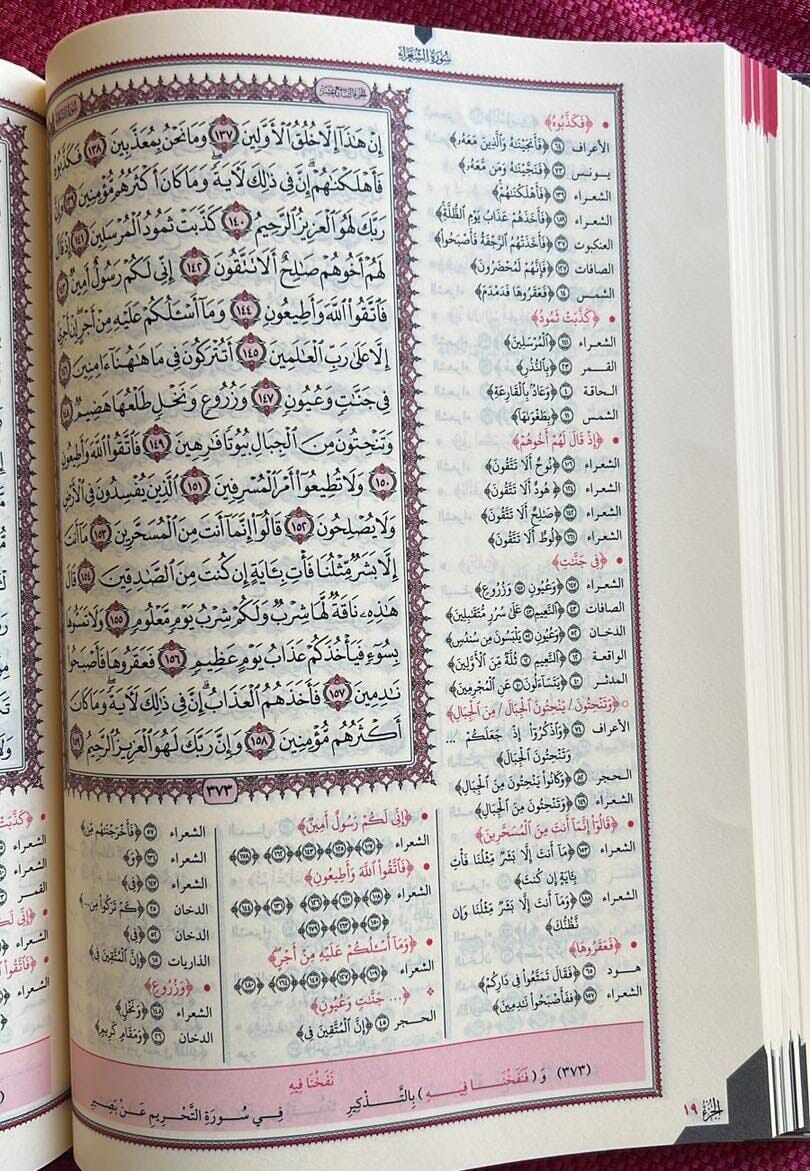 سُورَةُ الشُّعَرَاءِ
الجزء التاسع عشر
إِنْ هَٰذَآ إِلَّا خُلُقُ ٱلْأَوَّلِينَ ١٣٧ وَمَا نَحْنُ بِمُعَذَّبِينَ ١٣٨ فَكَذَّبُوهُ
فَأَهْلَكْنَٰهُمْ إِنَّ فِى ذَٰلِكَ لَءَايَةً وَمَا كَانَ أَكْثَرُهُم مُّؤْمِنِينَ ١٣٩ وَإِنَّ
رَبَّكَ لَهُوَ ٱلْعَزِيزُ ٱلرَّحِيمُ ١٤٠ كَذَّبَتْ ثَمُودُ ٱلْمُرْسَلِينَ ١٤١ إِذْ قَالَ
لَهُمْ أَخُوهُمْ صَٰلِحٌ أَلَا تَتَّقُونَ ١٤٢ إِنِّى لَكُمْ رَسُولٌ أَمِينٌ ١٤٣
فَٱتَّقُوا۟ ٱللَّهَ وَأَطِيعُونِ ١٤٤ وَمَآ أَسْـَٔلُكُمْ عَلَيْهِ مِنْ أَجْرٍ إِنْ أَجْرِىَ
إِلَّا عَلَىٰ رَبِّ ٱلْعَٰلَمِينَ ١٤٥ أَتُتْرَكُونَ فِى مَا هَٰهُنَآ ءَامِنِينَ ١٤٦
فِى جَنَّٰتٍ وَعُيُونٍ ١٤٧ وَزُرُوعٍ وَنَخْلٍ طَلْعُهَا هَضِيمٌ ١٤٨
وَتَنْحِتُونَ مِنَ ٱلْجِبَالِ بُيُوتًا فَٰرِهِينَ ١٤٩ فَٱتَّقُوا۟ ٱللَّهَ وَأَطِيعُونِ
١٥٠ وَلَا تُطِيعُوٓا۟ أَمْرَ ٱلْمُسْرِفِينَ ١٥١ ٱلَّذِينَ يُفْسِدُونَ فِى ٱلْأَرْضِ
وَلَا يُصْلِحُونَ ١٥٢ قَالُوٓا۟ إِنَّمَآ أَنتَ مِنَ ٱلْمُسَحَّرِينَ ١٥٣ مَآ أَنتَ
إِلَّا بَشَرٌ مِّثْلُنَا فَأْتِ بِـَٔايَةٍ إِن كُنتَ مِنَ ٱلصَّٰدِقِينَ ١٥٤ قَالَ
هَٰذِهِۦ نَاقَةٌ لَّهَا شِرْبٌ وَلَكُمْ شِرْبُ يَوْمٍ مَّعْلُومٍ ١٥٥ وَلَا تَمَسُّوهَا
بِسُوٓءٍ فَيَأْخُذَكُمْ عَذَابُ يَوْمٍ عَظِيمٍ ١٥٦ فَعَقَرُوهَا فَأَصْبَحُوا۟
نَٰدِمِينَ ١٥٧ فَأَخَذَهُمُ ٱلْعَذَابُ إِنَّ فِى ذَٰلِكَ لَءَايَةً وَمَا كَانَ
أَكْثَرُهُم مُّؤْمِنِينَ ١٥٨ وَإِنَّ رَبَّكَ لَهُوَ ٱلْعَزِيزُ ٱلرَّحِيمُ ١٥٩
٣٧٣
• ﴿فَكَذَّبُوهُ﴾
الأعراف ٦٤ ﴿فَأَنجَيْنَٰهُ وَٱلَّذِينَ مَعَهُۥ﴾
يونس ٧٣ ﴿فَنَجَّيْنَٰهُ وَمَن مَّعَهُۥ﴾
الشعراء ١٣٩ ﴿فَأَهْلَكْنَٰهُمْ﴾
الشعراء ١٨٩ ﴿فَأَخَذَهُمْ عَذَابُ يَوْمِ ٱلظُّلَّةِ﴾
العنكبوت ٣٧ ﴿فَأَخَذَتْهُمُ ٱلرَّجْفَةُ فَأَصْبَحُوا۟﴾
الصافات ١٢٧ ﴿فَإِنَّهُمْ لَمُحْضَرُونَ﴾
الشمس ١٤ ﴿فَعَقَرُوهَا فَدَمْدَمَ﴾
• ﴿كَذَّبَتْ ثَمُودُ﴾
الشعراء ١٤١ ﴿ٱلْمُرْسَلِينَ﴾
القمر ٢٣ ﴿بِٱلنُّذُرِ﴾
الحاقة ٤ ﴿وَعَادٌۢ بِٱلْقَارِعَةِ﴾
الشمس ١١ ﴿بِطَغْوَىٰهَآ﴾
• ﴿إِذْ قَالَ لَهُمْ أَخُوهُمْ﴾
الشعراء ١٠٦ ﴿نُوحٌ أَلَا تَتَّقُونَ﴾
الشعراء ١٢٤ ﴿هُودٌ أَلَا تَتَّقُونَ﴾
الشعراء ١٤٢ ﴿صَٰلِحٌ أَلَا تَتَّقُونَ﴾
الشعراء ١٦١ ﴿لُوطٌ أَلَا تَتَّقُونَ﴾
• ﴿فِى جَنَّٰتٍ﴾
الشعراء ١٤٧ ﴿وَعُيُونٍ ١٤٧ وَزُرُوعٍ﴾
الصافات ٤٣ ﴿ٱلنَّعِيمِ ٤٣ عَلَىٰ سُرُرٍ مُّتَقَٰبِلِينَ﴾
الدخان ٥٢ ﴿وَعُيُونٍ ٥٢ يَلْبَسُونَ مِن سُندُسٍ﴾
الواقعة ١٢ ﴿ٱلنَّعِيمِ ١٢ ثُلَّةٌ مِّنَ ٱلْأَوَّلِينَ﴾
المدثر ٤٠ ﴿يَتَسَآءَلُونَ ٤٠ عَنِ ٱلْمُجْرِمِينَ﴾
○ ﴿وَتَنْحِتُونَ / يَنْحِتُونَ ٱلْجِبَالَ / مِنَ ٱلْجِبَالِ﴾
الأعراف ٧٤ ﴿وَٱذْكُرُوٓا۟ إِذْ جَعَلَكُمْ ...
وَتَنْحِتُونَ ٱلْجِبَالَ﴾
الحجر ٨٢ ﴿وَكَانُوا۟ يَنْحِتُونَ مِنَ ٱلْجِبَالِ﴾
الشعراء ١٤٩ ﴿وَتَنْحِتُونَ مِنَ ٱلْجِبَالِ﴾
• ﴿قَالُوٓا۟ إِنَّمَآ أَنتَ مِنَ ٱلْمُسَحَّرِينَ﴾
الشعراء ١٥٣ ﴿مَآ أَنتَ إِلَّا بَشَرٌ مِّثْلُنَا فَأْتِ
بِـَٔايَةٍ إِن كُنتَ﴾
الشعراء ١٨٥ ﴿وَمَآ أَنتَ إِلَّا بَشَرٌ مِّثْلُنَا وَإِن
نَّظُنُّكَ﴾
• ﴿فَعَقَرُوهَا﴾
هود ٦٥ ﴿فَقَالَ تَمَتَّعُوا۟ فِى دَارِكُمْ﴾
الشعراء ١٥٧ ﴿فَأَصْبَحُوا۟ نَٰدِمِينَ﴾
• ﴿إِنِّى لَكُمْ رَسُولٌ أَمِينٌ﴾
الشعراء ﴿١٠٧﴾ ﴿١٢٥﴾ ﴿١٤٣﴾ ﴿١٦٢﴾ ﴿١٧٨﴾
• ﴿فَٱتَّقُوا۟ ٱللَّهَ وَأَطِيعُونِ﴾
الشعراء ﴿١٠٨﴾ ﴿١١٠﴾ ﴿١٢٦﴾ ﴿١٣١﴾ ﴿١٤٤﴾
﴿١٥٠﴾ ﴿١٦٣﴾ ﴿١٧٩﴾
• ﴿وَمَآ أَسْـَٔلُكُمْ عَلَيْهِ مِنْ أَجْرٍ﴾
الشعراء ﴿١٠٩﴾ ﴿١٢٧﴾ ﴿١٤٥﴾ ﴿١٦٤﴾ ﴿١٨٠﴾
❖ ﴿... جَنَّٰتٍ وَعُيُونٍ﴾
الحجر ٤٥ ﴿إِنَّ ٱلْمُتَّقِينَ فِى﴾
الشعراء ٥٧ ﴿فَأَخْرَجْنَٰهُم مِّن﴾
الشعراء ١٣٤ ﴿وَ﴾
الشعراء ١٤٧ ﴿فِى﴾
الدخان ٢٥ ﴿كَمْ تَرَكُوا۟ مِن...﴾
الدخان ٥٢ ﴿فِى﴾
الذاريات ١٥ ﴿إِنَّ ٱلْمُتَّقِينَ فِى﴾
• ﴿وَزُرُوعٍ﴾
الشعراء ١٤٨ ﴿وَنَخْلٍ﴾
الدخان ٢٦ ﴿وَمَقَامٍ كَرِيمٍ﴾
(٣٧٣) وَ(فَنَفَخْنَـــا فِيهِ) بِالتَّـــذْكِيرِ
نَفَخْنَا فِيهِ
فِـي سُـورَةِ التَّحْرِيـمِ عَـنْ بَصِيرِ
الجزء ١٩